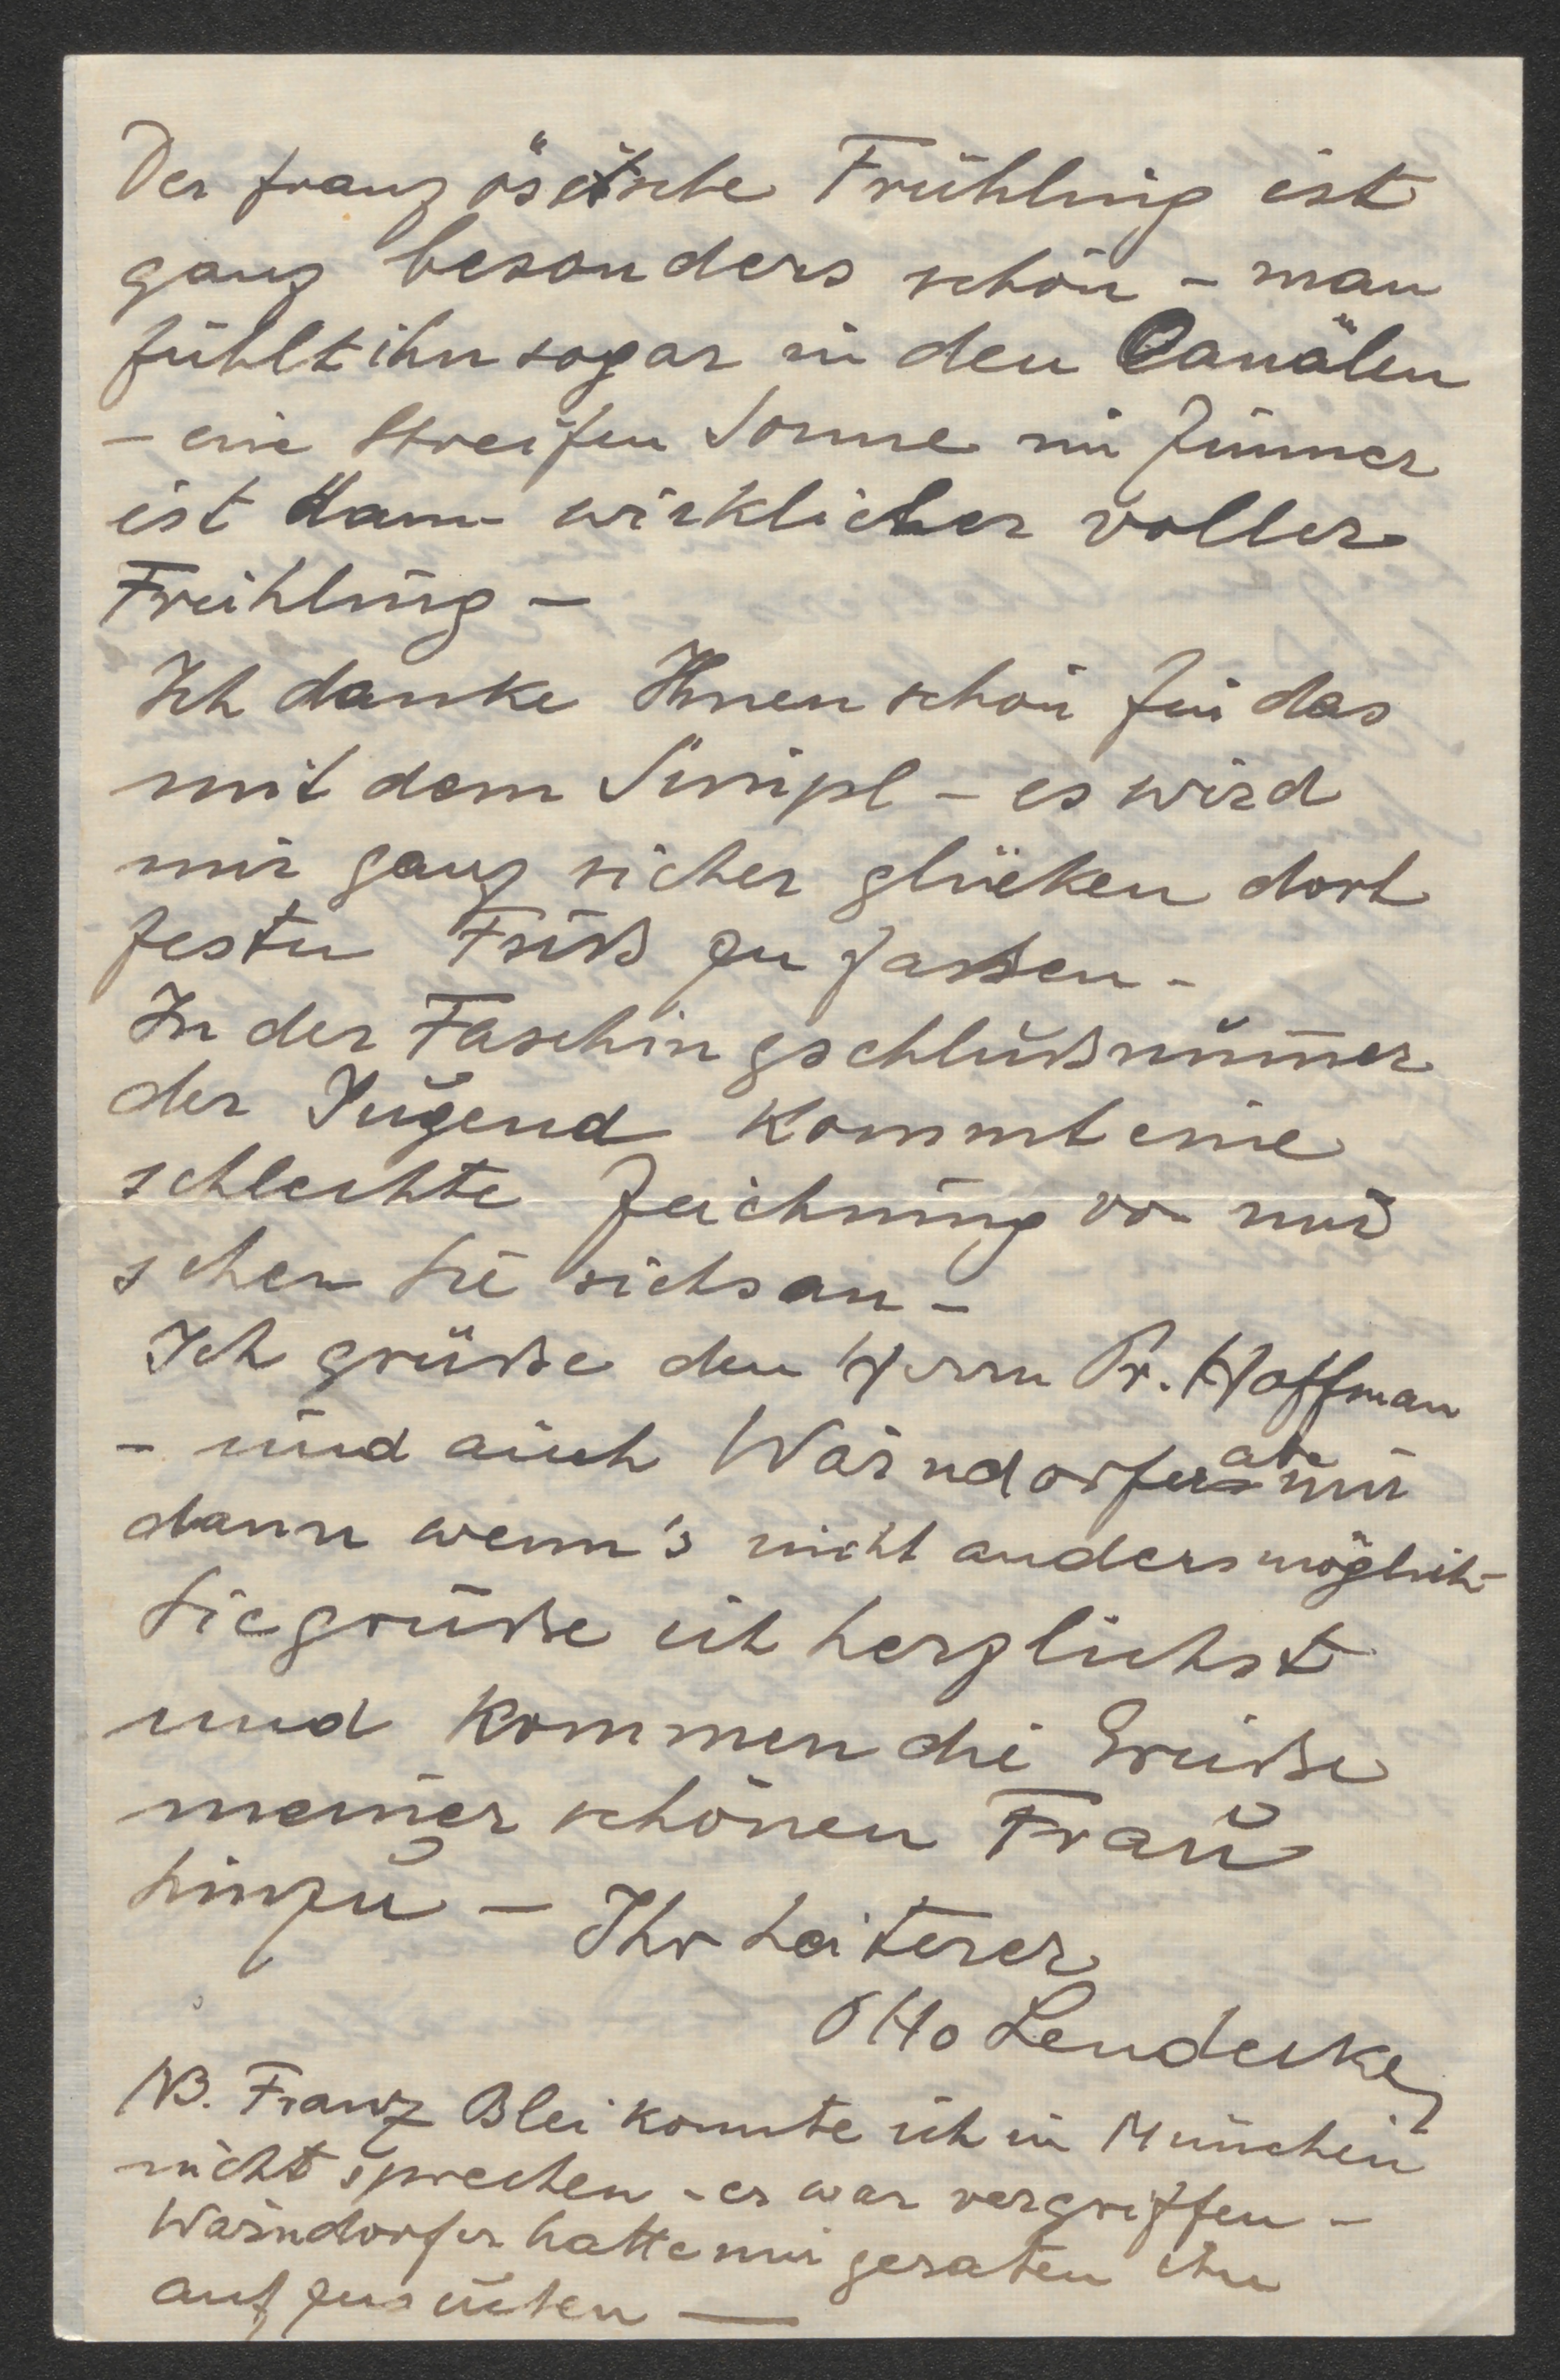 Der französische Frühling ist
ganz besonders schön – man
fühlt ihn sogar in den Canälen
– eine Streifen Sonne im Zimmer
ist dann wirklicher voller
Frühling –
Ich danke Ihnen schön für das
mit dem Simpl – es wird
mir ganz sicher glücken dort
festen Fuß zu faßen –
In der Faschingschlußnum̄er
der Jugend kommt eine
schlechte Zeichnung von mir
sehen Sie sichs an –
Ich grüße den Herrn Pr. Hoffman
– und auch Wärndorfer aber nur
dann wenn's nicht anders möglich –
Sie grüße ich herzlichst
und kommen die Grüße
meiner schönen Frau
hinzu – Ihr heiterer
Otto Lendecke
NB. Franz Blei konnte ich in München
nicht sprechen – er war vergriffen –
Wärndorfer hatte mir geraten ihn
aufzusuchen —